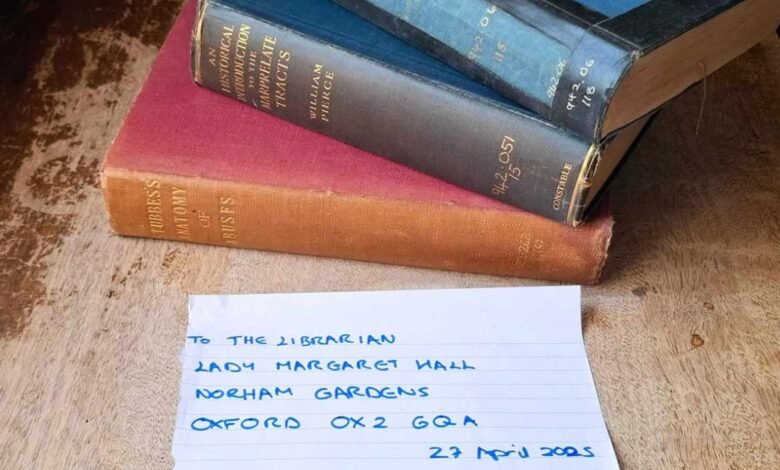 942.06
118
942.06
942.06
118
AN
HISTORICAL
INTRODUCTION
TO THE
MARPRELATE
TRACTS
WILLIAM
PIERCE
942.051
15
CONSTABLE
STUBBES'S
ANATOMY
OF
ABUSES
TO THE LIBRARIAN
LADY MARGARET HALL
NORHAM GARDENS
OXFORD OX2 6QA
27 April 2025